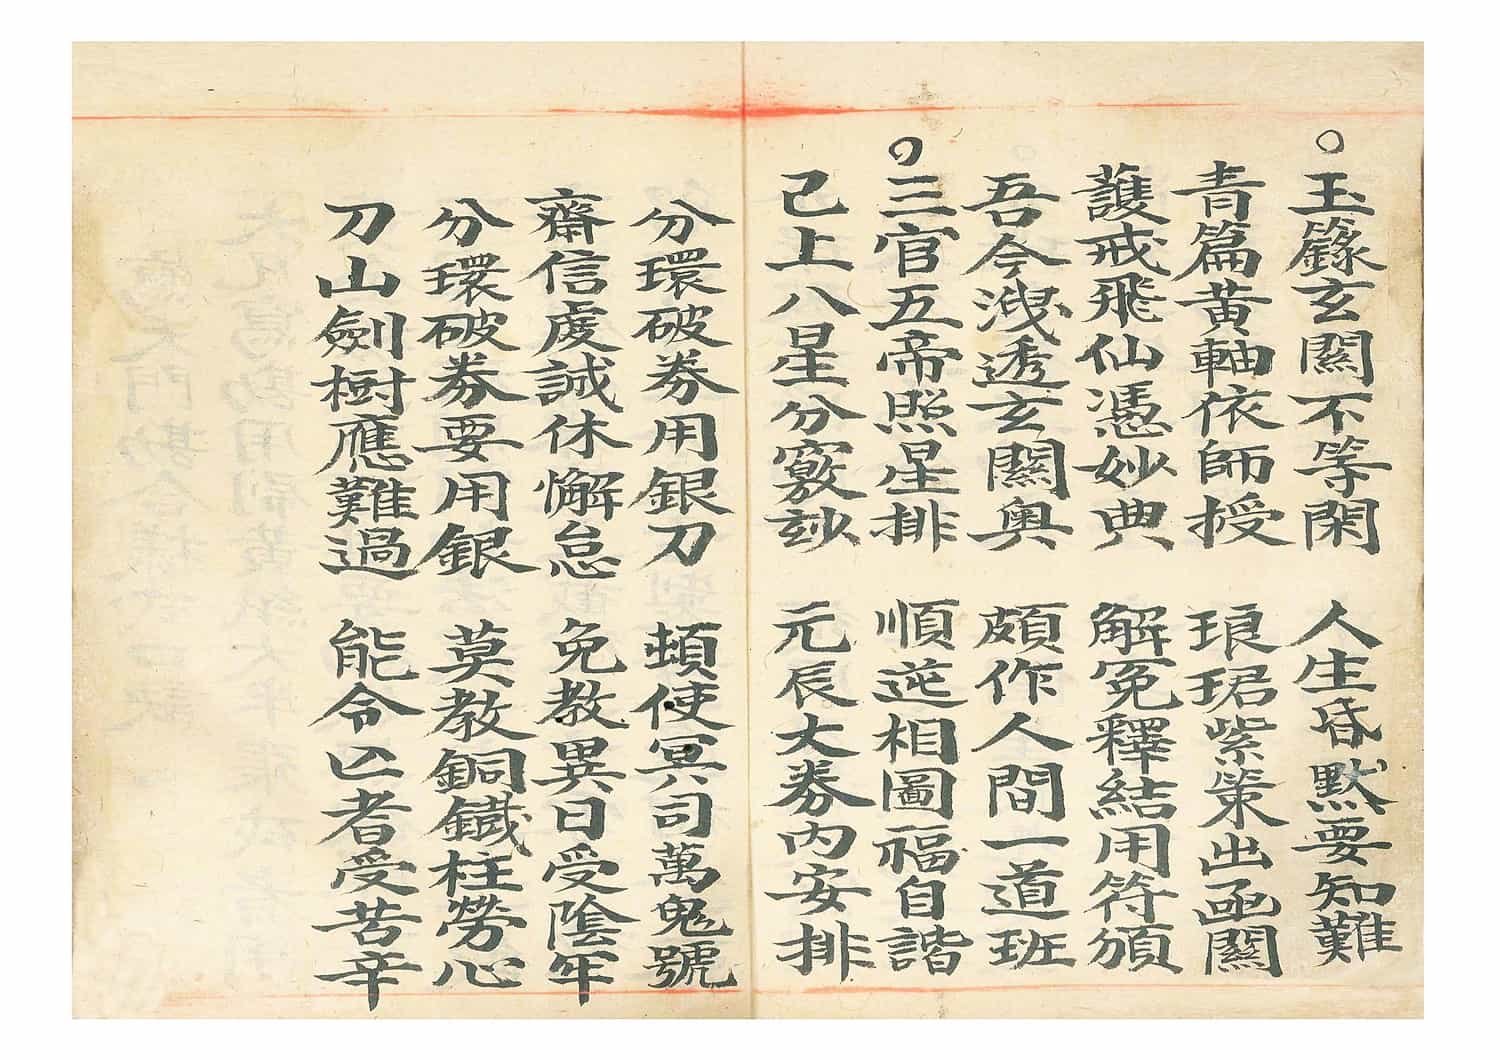 ○玉籙玄關不等閑 人生昏默要知難
青篇黃軸依師授 琅珺紫策出函關
護戒飛仙憑妙典 解冤釋結用符頒
吾今洩透玄關奧 頗作人間一道班
○三官五帝照星排 順逆相圖福自諧
己上八星分竅玅 元辰大券內安排
分環破券用銀刀 頓使冥司萬鬼號
齋信虔誠休懈怠 免教異日受陰牢
分環破券要用銀 莫教銅鐵柱勞心
刀山劍樹應難過 能令亾者受苦辛